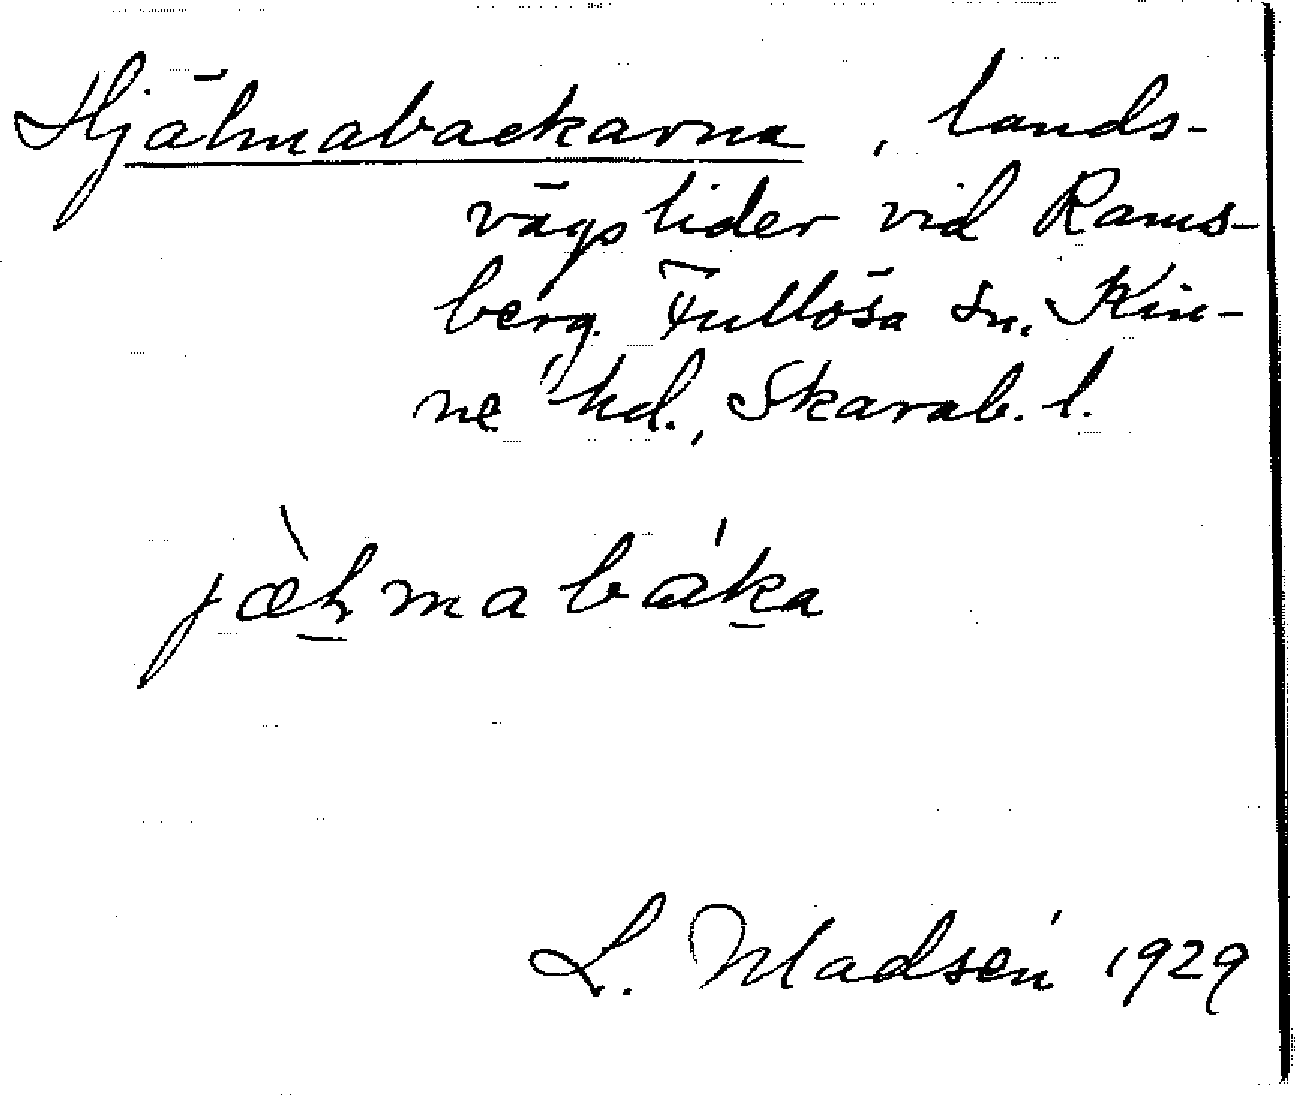 Hjälmabackarna, lands-
vägslider vid Rams-
berg. Fullösa sn. Kin-
ne hd., Skarab. l.
jæ̀lmabáka
L. Madsén 1929